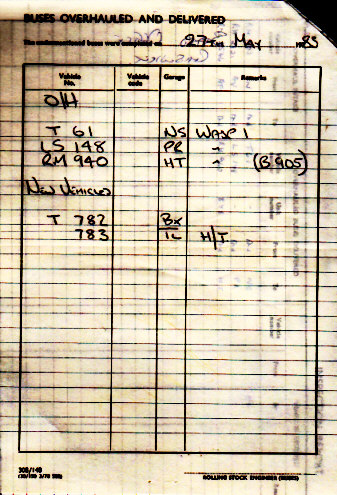 BUSES OVERHAULED AND DELIVERED
The undermentioned buses were completed on 27th May 1983
Vehicle No. Vehicle code Garage Remarks
O/H
T 61 NS WASP 1
LS 148 PR "
RM 940 HT " (B 905)
NEW VEHICLES
T 782 BX
783 TL H/T
308/148
ROLLING STOCK ENGINEER (BUSES)